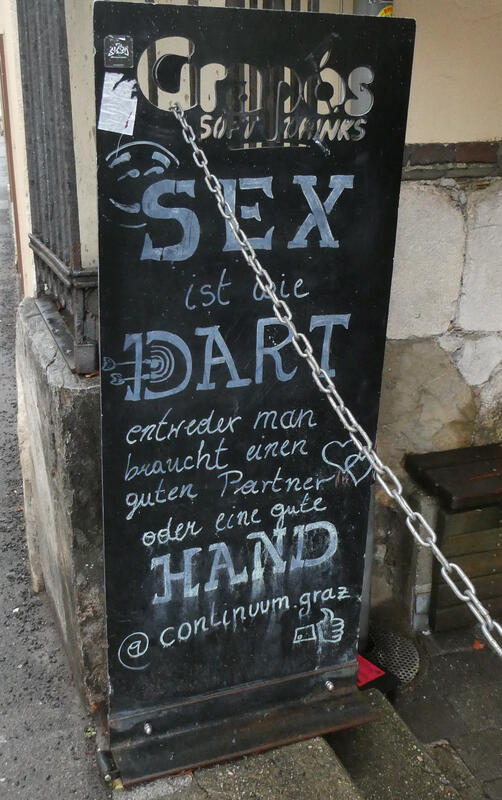 Grapos
SOFT DRINKS
SEX
ist wie
DART
entweder man
braucht einen
guten Partner
oder eine gute
HAND
@ continuum.graz